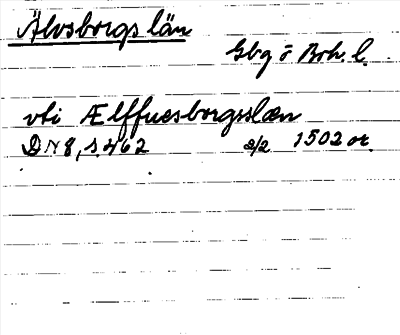 Älvsborgs län
Gbg o Boh. l.
vti Ælffuesborgsslæn
DN 8, s. 462 2/2 1502 or.